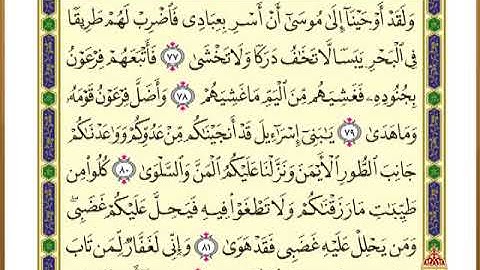 وَلَقَدْ أَوْحَيْنَآ إِلَىٰ مُوسَىٰٓ أَنْ أَسْرِ بِعِبَادِى فَٱضْرِبْ لَهُمْ طَرِيقًا
فِى ٱلْبَحْرِ يَبَسًا لَّا تَخَٰفُ دَرَكًا وَلَا تَخْشَىٰ ٧٧ فَأَتْبَعَهُمْ فِرْعَوْنُ
بِجُنُودِهِۦ فَغَشِيَهُم مِّنَ ٱلْيَمِّ مَا غَشِيَهُمْ ٧٨ وَأَضَلَّ فِرْعَوْنُ قَوْمَهُۥ
وَمَا هَدَىٰ ٧٩ يَٰبَنِىٓ إِسْرَٰٓءِيلَ قَدْ أَنجَيْنَٰكُم مِّنْ عَدُوِّكُمْ وَوَٰعَدْنَٰكُمْ
جَانِبَ ٱلطُّورِ ٱلْأَيْمَنَ وَنَزَّلْنَا عَلَيْكُمُ ٱلْمَنَّ وَٱلسَّلْوَىٰ ٨٠ كُلُوا۟ مِن
طَيِّبَٰتِ مَا رَزَقْنَٰكُمْ وَلَا تَطْغَوْا۟ فِيهِ فَيَحِلَّ عَلَيْكُمْ غَضَبِى ۖ
وَمَن يَحْلِلْ عَلَيْهِ غَضَبِى فَقَدْ هَوَىٰ ٨١ وَإِنِّى لَغَفَّارٌ لِّمَن تَابَ